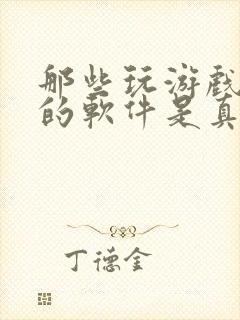 那些玩游戲
的軟件是真
丁德金